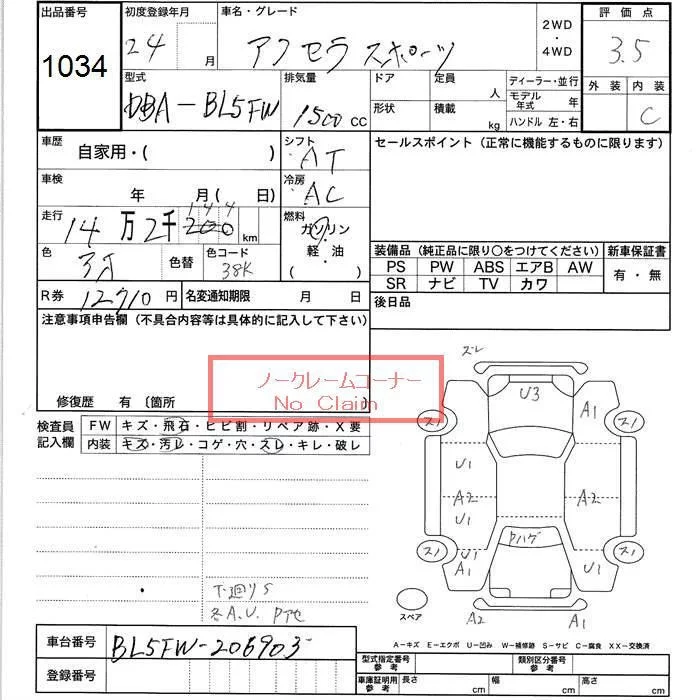 出品番号 初度登録年月 車名・グレード 2WD・4WD 評価点
1034 24 月 アクセラ スポーツ 3.5
型式 排気量 ドア 定員 人 ディーラー・並行 外装 内装
DBA-BL5FW 1500 CC 形状 積載 kg モデル年式 年 C
ハンドル 左・右
車歴 自家用・( ) シフト AT セールスポイント (正常に機能するものに限ります)
車検 年 月( 日) 冷房 AC
走行 14万2千 144 200 km 燃料 ガソリン 軽・油 ( )
色 色替 色コード 38K
装備品 (純正品に限り○をつけてください) 新車保証書
PS PW ABS エアB AW 有・無
SR ナビ TV カワ
R券 12710円 名変通知期限 月 日 後日品
注意事項申告欄 (不具合内容等は具体的に記入して下さい)
ノークレームコーナー
No Claim
修復歴 有 〔箇所
検査員記入欄 FW キズ・飛石・ヒビ割・リペア跡・X要
内装 キズ・汚レ・コゲ・穴・スレ・キレ・破レ
ズレ
U3
A1
スノ スノ
U1
A2 A2
U1
ワハゲ
スノ スノ
U1 U1
A1
スペア A2 A1
下廻りS
A-キズ E-エクボ U-凹み W-補修跡 S-サビ C-腐食 XX-交換済
車台番号 BL5FW-206903
登録番号
型式指定番号 参考 類別区分番号 参考
車庫証明用 参考 長さ cm 幅 cm 高さ cm